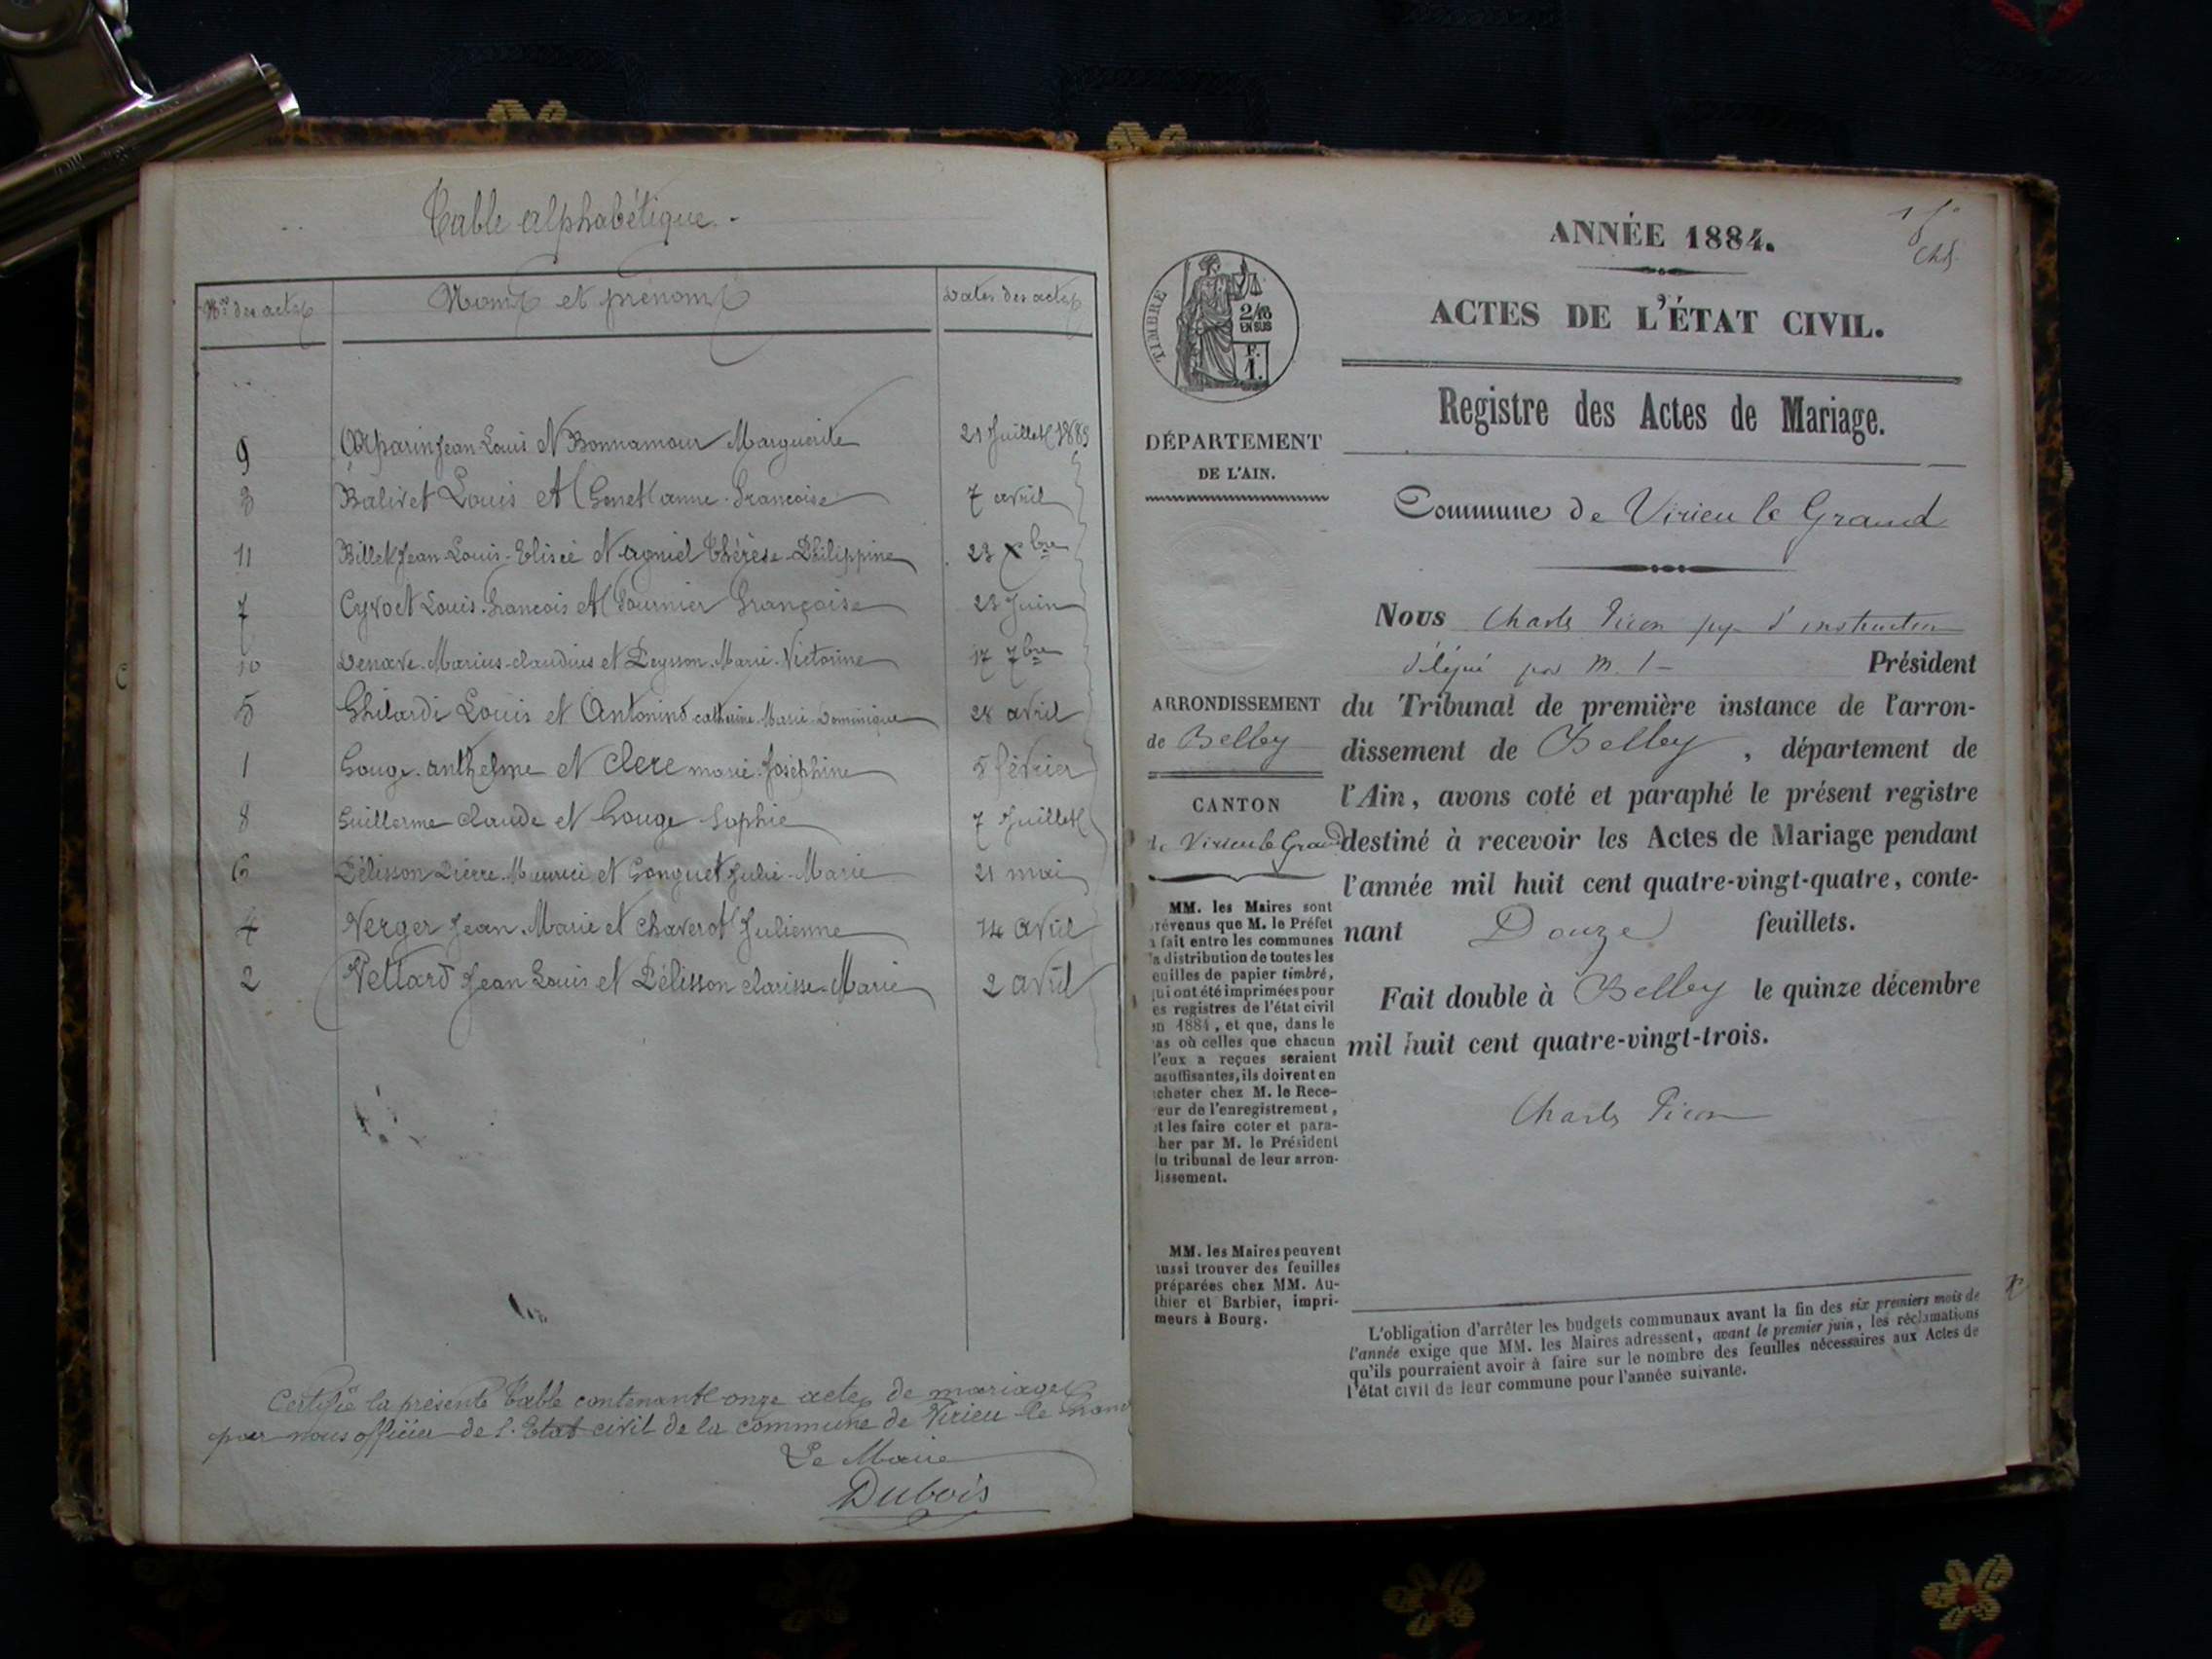 Table alphabétique.
Nos des actes
Noms et prénoms
Dates des actes
9 Arparin Jean Louis et Bonnamour Marguerite 21 Juillet 1883
3 Balivet Louis et Genet anne-Francoise 7 avril
11 Billet Jean-Louis-Elisée et agniel Thérèse-Philippine 23 Xbre
7 Cyvoct Louis-Francois et Fournier Françoise 23 Juin
10 Denave-Marius-claudius et Peysson-Marie-Victorine 17 7bre
5 Ghilardi Louis et Antonino catherine-Marie-Dominique 28 avril
1 Gouge-anthelme et Clerc marie-Joséphine 5 février
8 Guillerme claude et Gouge Sophie 7 Juillet
6 Pélisson Pierre-Maurice et Gonguet Julie-Marie 21 mai
4 Verger Jean-Marie et Chaverot Julienne 14 avril
2 Vettard Jean Louis et Pélisson clarisse-Marie 2 avril
Certifié la présente Table contenant onze actes de mariages
par nous officier de l'Etat civil de la commune de Virieu le Grand
Le Maire
Dubois
ANNÉE 1884.
ACTES DE L'ÉTAT CIVIL.
Registre des Actes de Mariage.
TIMBRE
2/10
EN SUS
F.
1.
DÉPARTEMENT
DE L'AIN.
Commune de Virieu le Grand
Nous Charles Picon juge d'instruction
délégué par M. le Président
ARRONDISSEMENT
de Belley
CANTON
de Virieu le Grand
du Tribunal de première instance de l'arron-
dissement de Belley, département de
l'Ain, avons coté et paraphé le présent registre
destiné à recevoir les Actes de Mariage pendant
l'année mil huit cent quatre-vingt-quatre, conte-
nant Douze feuillets.
Fait double à Belley le quinze décembre
mil huit cent quatre-vingt-trois.
Charles Picon
MM. les Maires sont
révenus que M. le Préfet
a fait entre les communes
la distribution de toutes les
euilles de papier timbré,
qui ont été imprimées pour
es registres de l'état civil
en 1884, et que, dans le
as où celles que chacun
l'eux a reçues seraient
nsuffisantes, ils doivent en
cheter chez M. le Rece-
eur de l'enregistrement,
t les faire coter et para-
her par M. le Président
lu tribunal de leur arron-
lissement.
MM. les Maires peuvent
aussi trouver des feuilles
préparées chez MM. Au-
thier et Barbier, impri-
meurs à Bourg.
L'obligation d'arrêter les budgets communaux avant la fin des six premiers mois de
l'année exige que MM. les Maires adressent, avant le premier juin, les réclamations
qu'ils pourraient avoir à faire sur le nombre des feuilles nécessaires aux Actes de
l'état civil de leur commune pour l'année suivante.